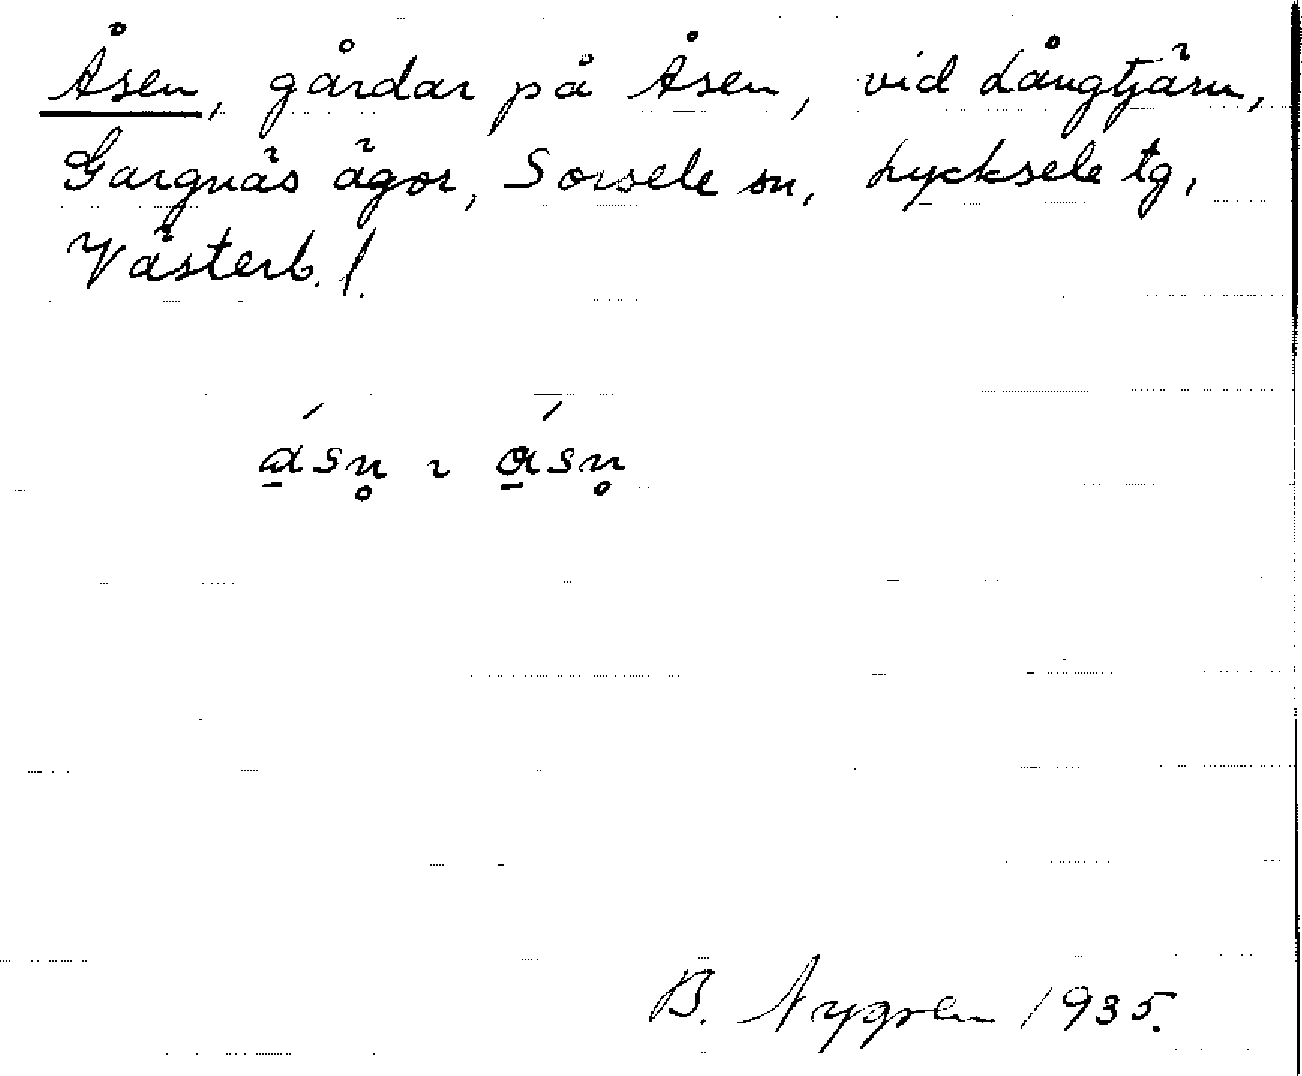 Åsen, gårdar på Åsen, vid Långtjärn,
Gargnäs ägor, Sorsele sn, Lycksele tg,
Västerb. l.
B. Nygren 1935.